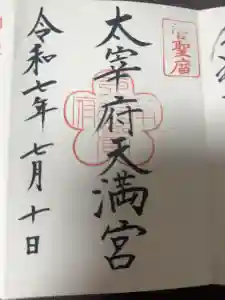 菅聖廟
太宰府天満宮
令和七年七月十日